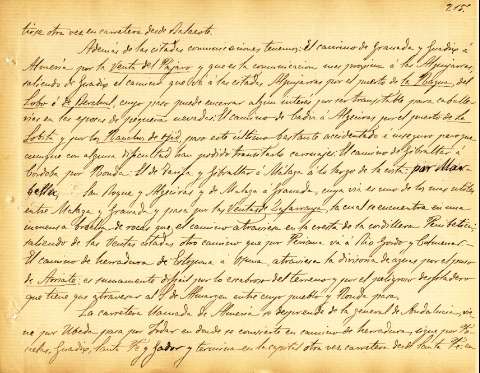 215.
tirse otra vez en carretera desde
Además de las citadas comunicaciones tenemos: El camino de Granada y Guadix á
Almería por la Venta del Pájaro y que es la comunicacion mas proxima á las Alpujarras,
saliendo de Guadix el camino que vá á las citadas Alpujarras por el puerto de la Ragua, del
Lobo ó de cuyo paso puede encerrar algun interés por ser transitable para caballe-
rias en las épocas de pequeña nevadas. El camino de Cadiz á Algeciras por el puerto de la
y por los paso este ultimo bastante accidentado é inseguro pero que
aunque con alguna dificultad han podido transitarlo carruajes. El camino de Gibraltar á
Córdoba por Ronda. El de Tarifa y Gibraltar á Málaga á lo largo de la costa por Mar-
bella, San Roque y Algeciras y de Malaga á Granada, cuya via es una de las mas utiles
entre Malaga y Granada y pasa por las Ventas de Zafarraya, la cual se encuentra en una
inmensa brecha de rocas que, el camino atraviesa en la cresta de la cordillera Penibética;
saliendo de las Ventas citadas otro camino que por Periana vá á Rio Gordo y Colmenar.
El camino de herradura de á Osuna, atraviesa la divisoria de aguas por el puerto
de Arriate; es sumamente dificil por lo escabroso del terreno y por el peligroso desfiladero
que tiene que atravesar al de Almargen entre cuyo pueblo y Ronda pasa.
La carretera llamada de Almería se desprende de la general de Andalucia, vie-
ne por Ubeda para por Jodar en donde se convierte en camino de herradura, sigue por
Guadix, Santa Fé y Gador y termina en la capital otra vez carretera desde Santa Fé; en